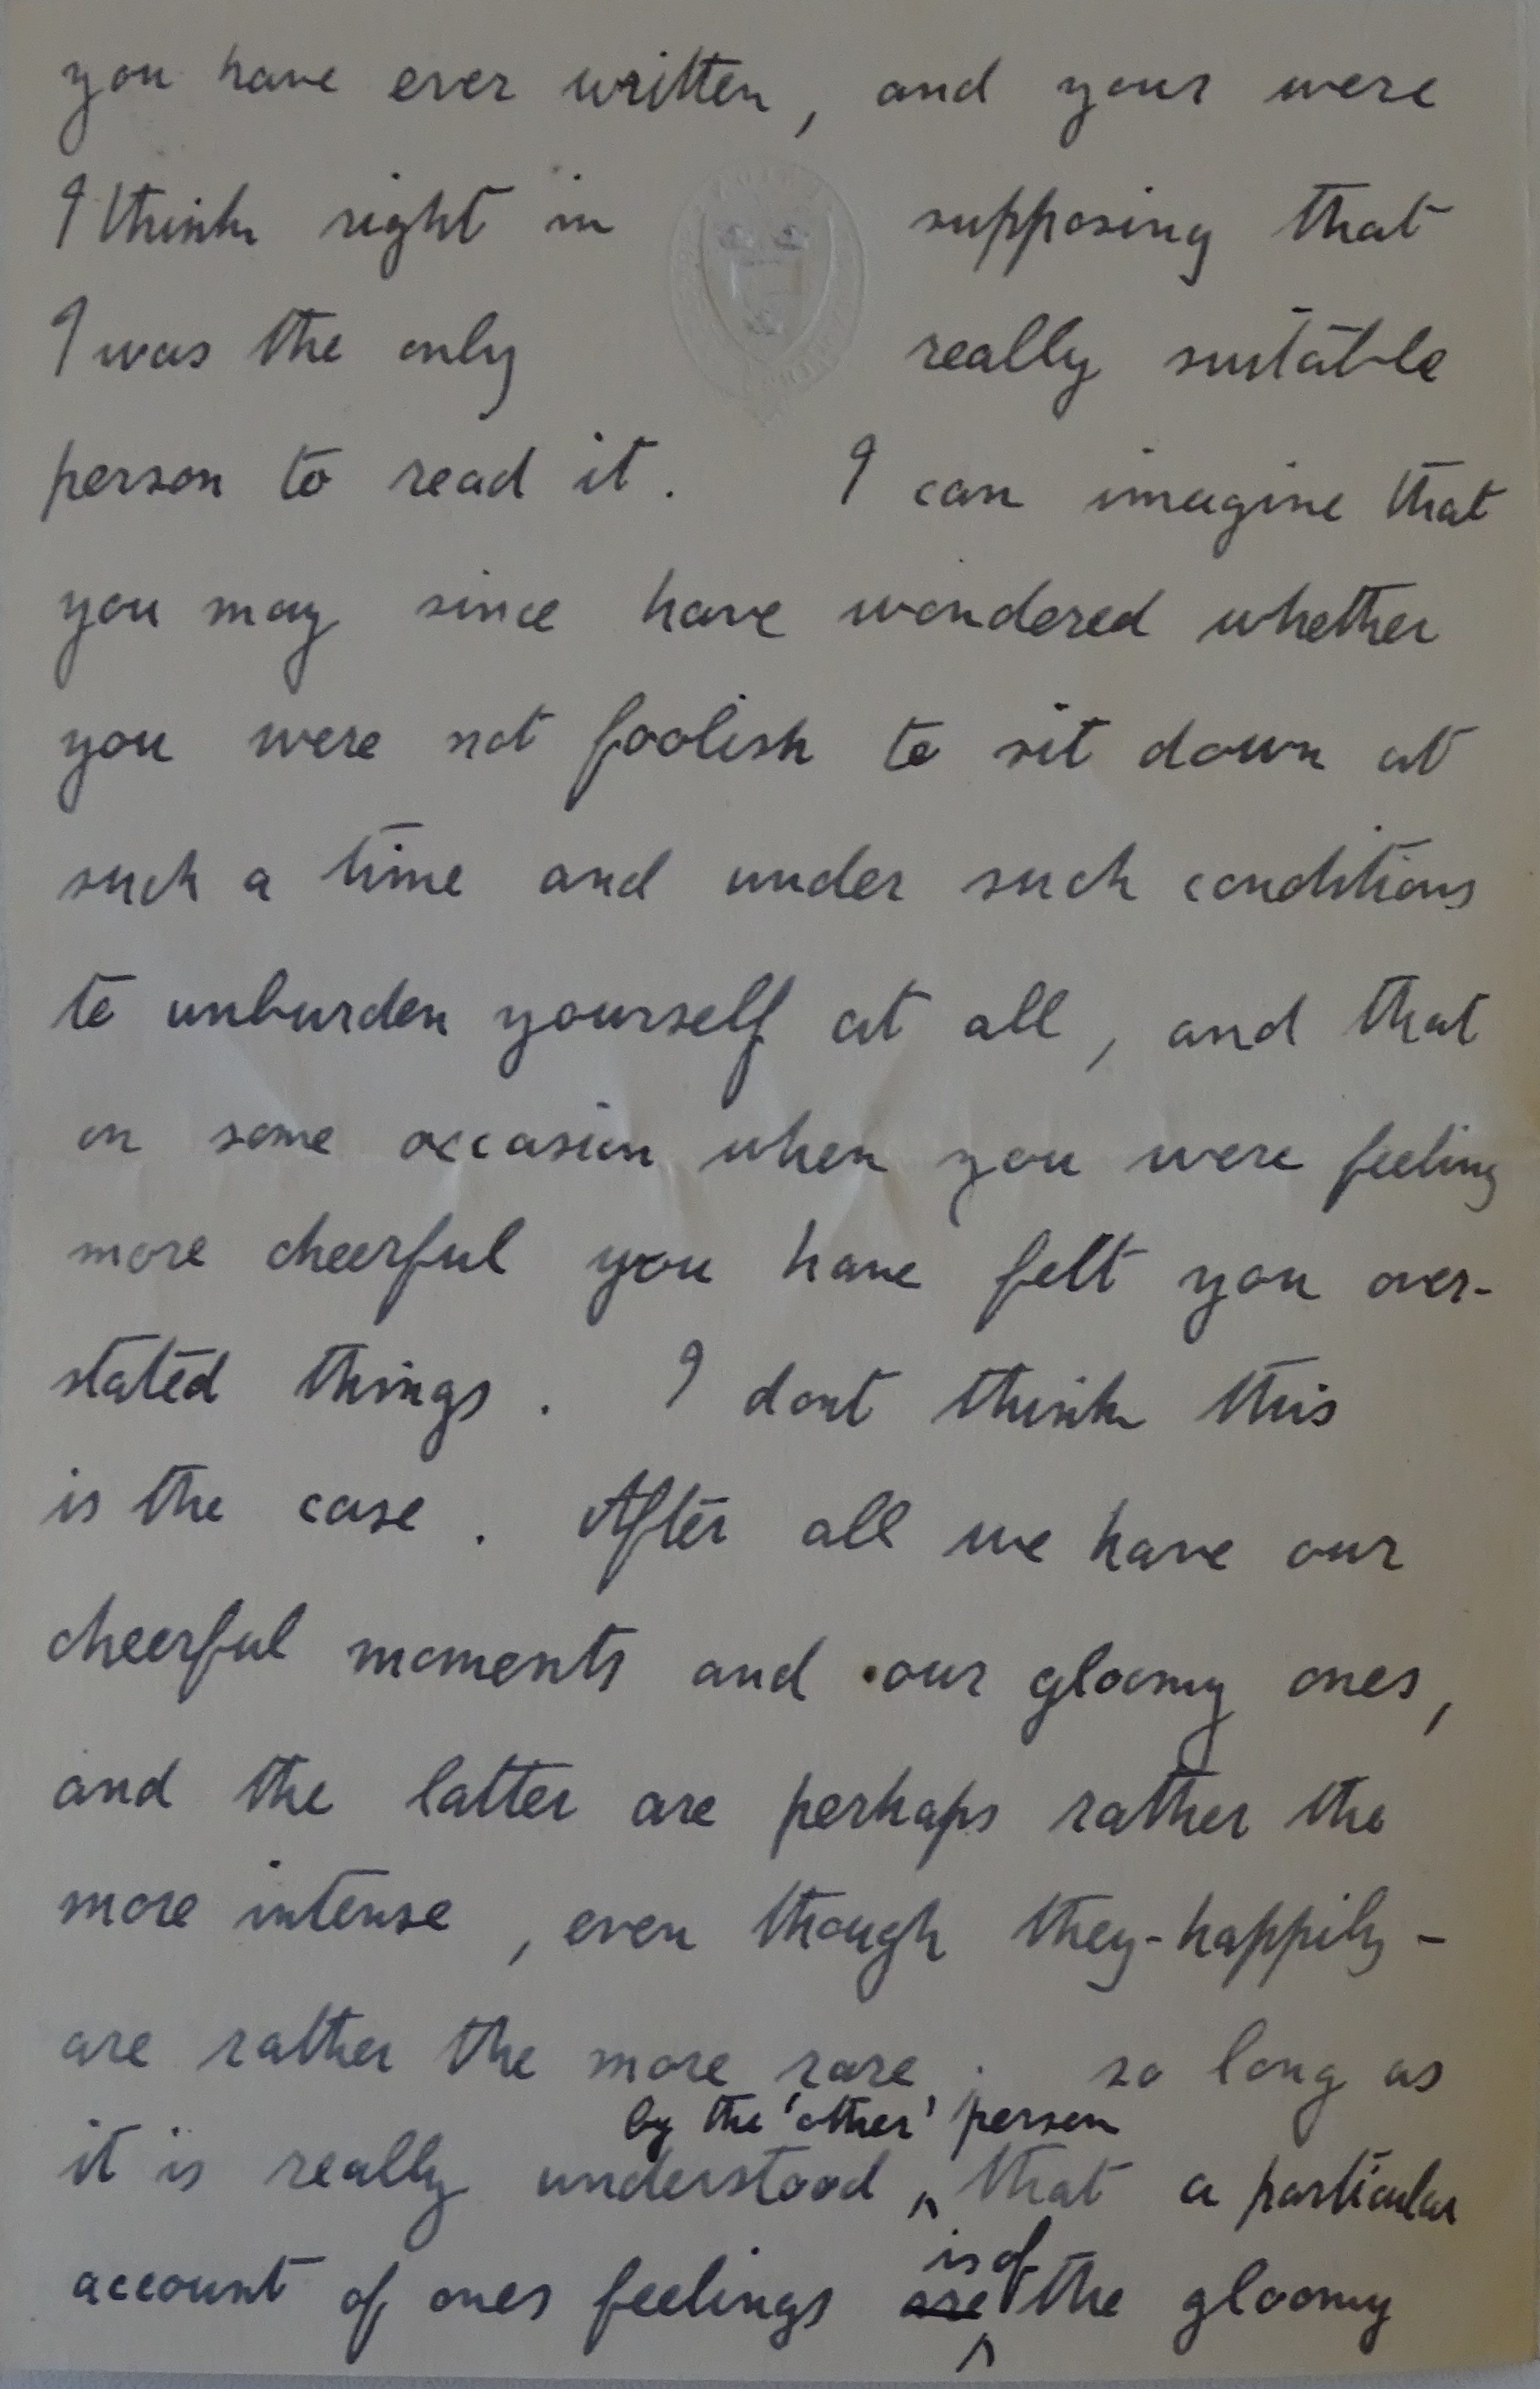 you have ever written, and your were
I think right in supposing that
I was the only really suitable
person to read it. I can imagine that
you may since have wondered whether
you were not foolish to sit down at
such a time and under such conditions
to unburden yourself at all, and that
on some occasion when you were feeling
more cheerful you have felt you over-
stated things. I dont think this
is the case. After all we have our
cheerful moments and our gloomy ones,
and the latter are perhaps rather the
more intense, even though they - happily -
are rather the more rare. so long as
by the 'other' person
it is really understood ^ that a particular
is of
account of ones feelings are ^ the gloomy